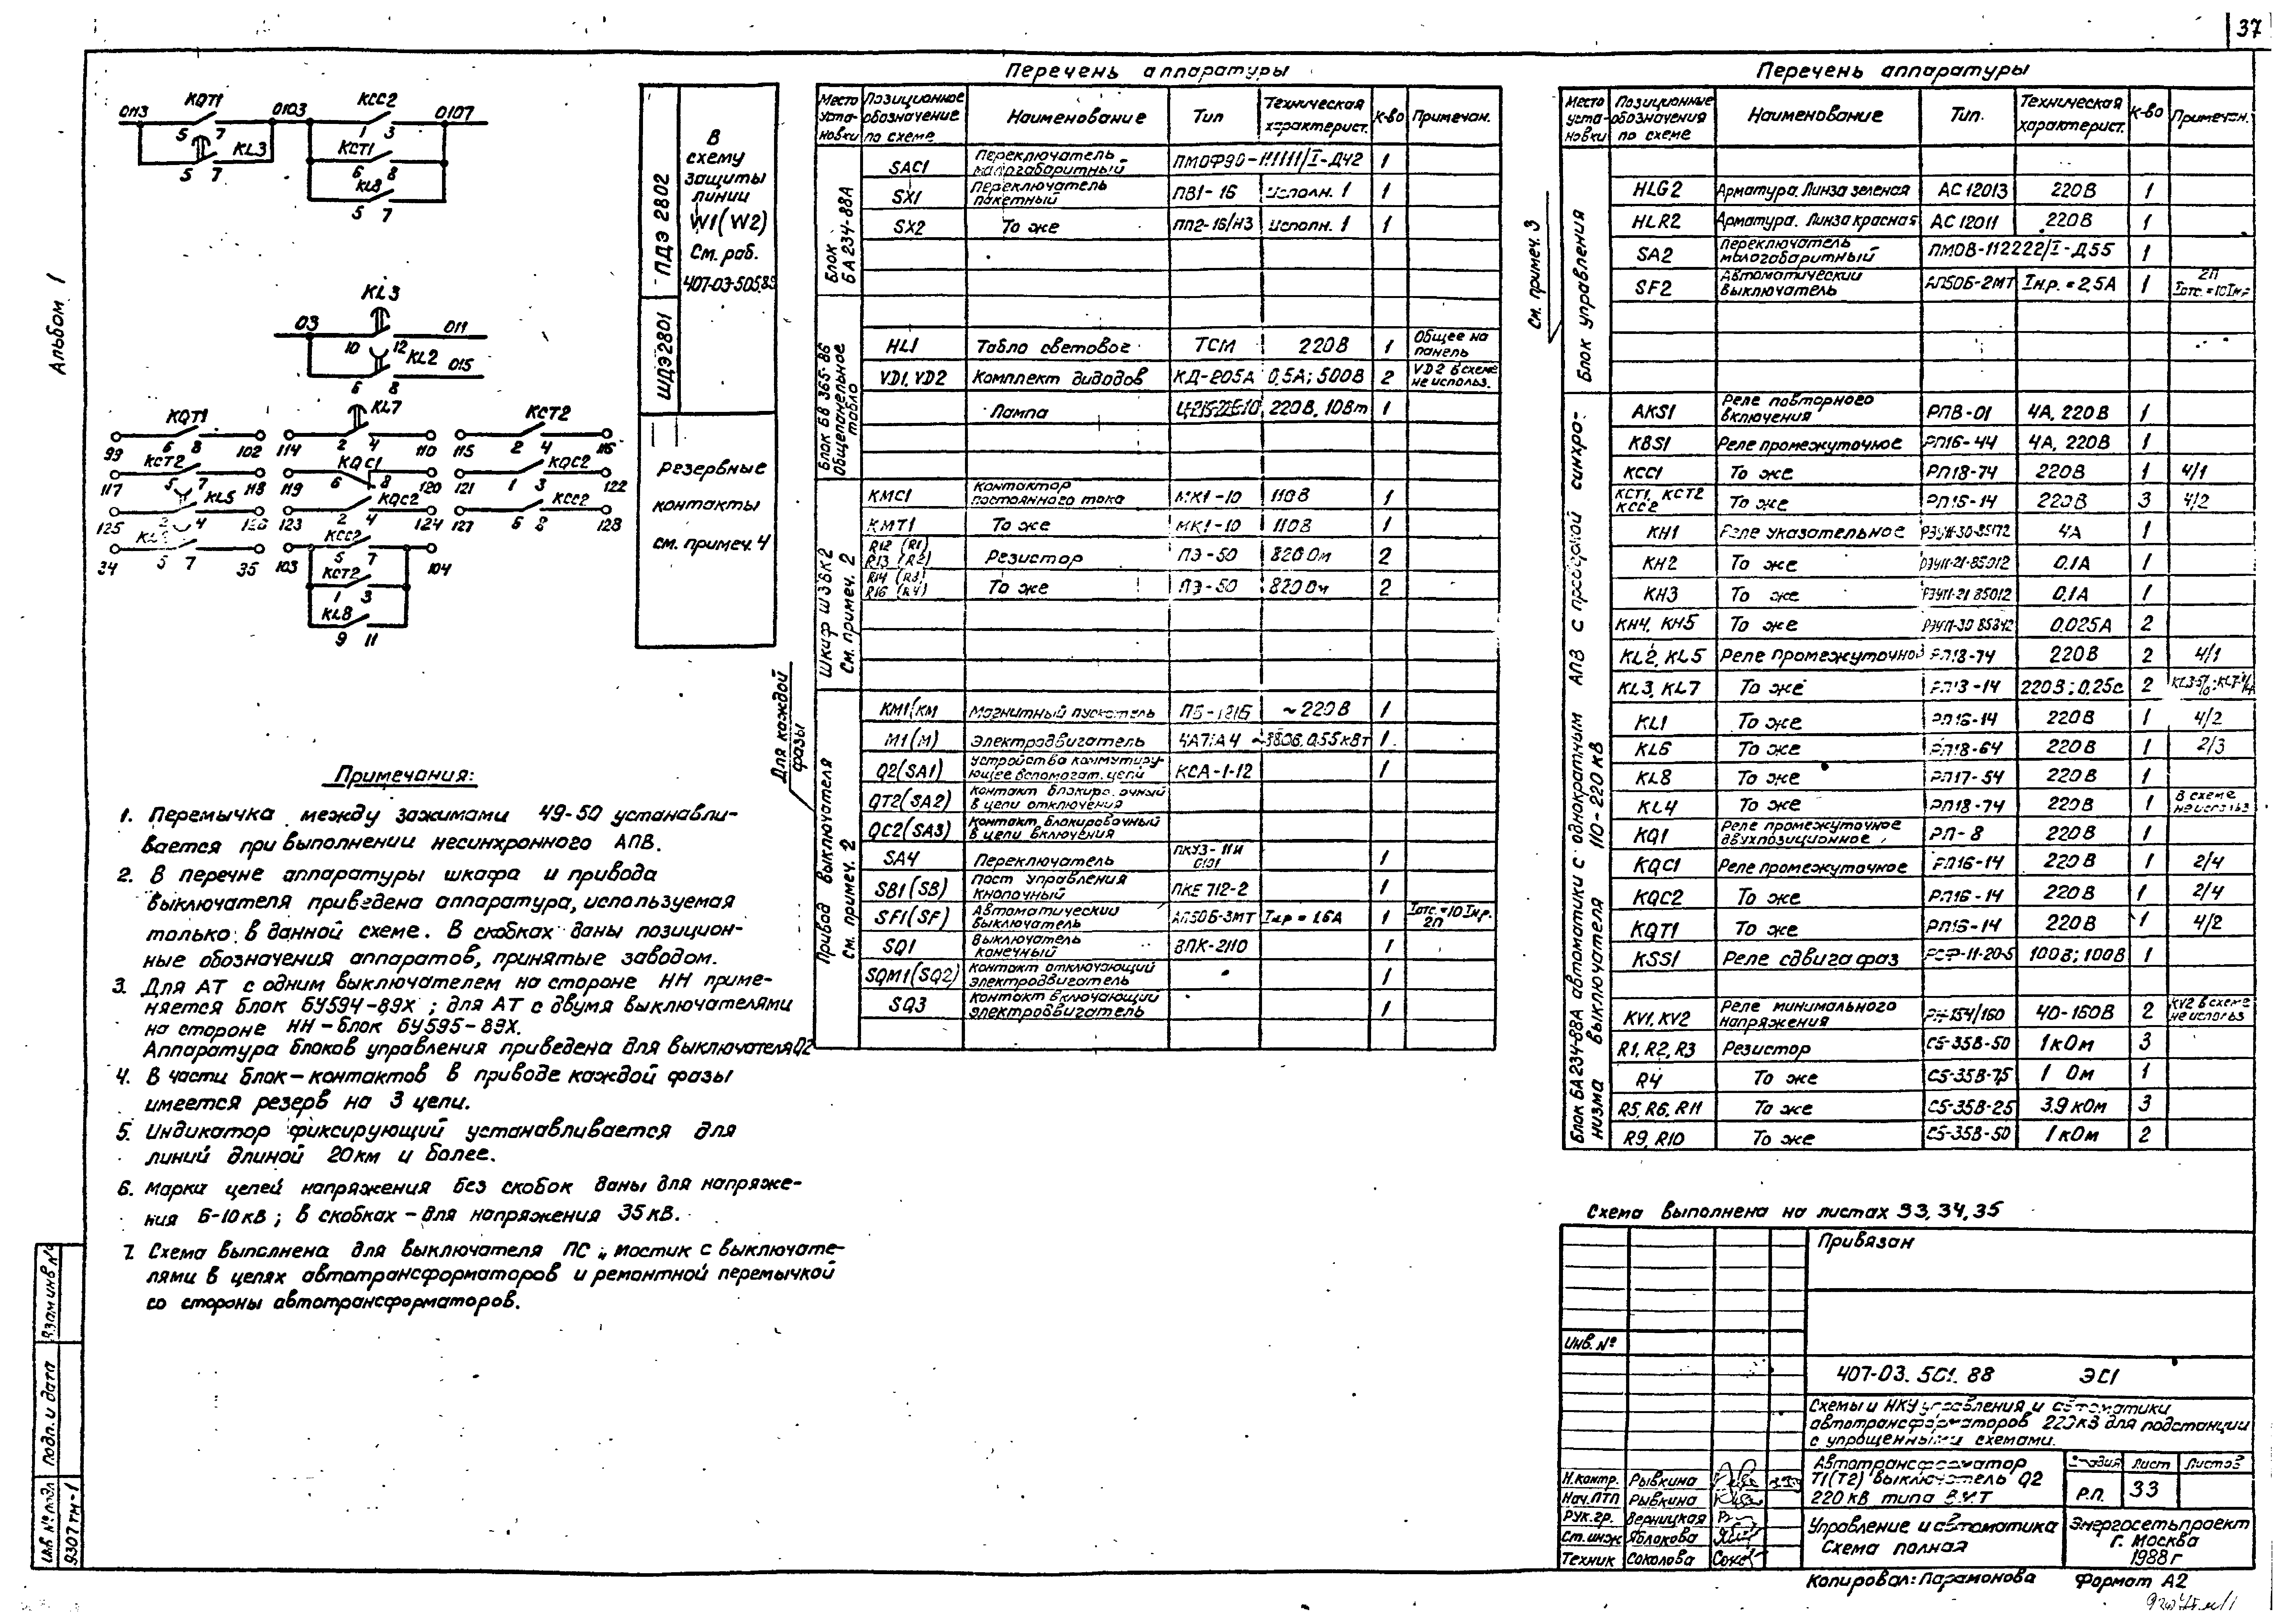 37
Альбом 1
0113 KQT1 0103 KCC2 0107
5 7 1 3
KL3 KCT1
5 7 6 8
KL8
5 7
KL3
03 011
10 12 KL2 015
6 8
KQT1 KL7 KCT2
99 6 8 102 114 2 4 110 115 2 4 116
KCT2 KQC1 KQC2
117 5 7 118 119 6 8 120 121 1 3 122
KL5 KQC2 KCC2
125 2 4 126 123 2 4 124 127 6 8 128
KCC2
34 5 7 35 103 5 7 104
KCT2
1 3
KL8
9 11
ШДЭ2801 ПДЭ 2802
В
схему
защиты
линии
W1(W2)
См. раб.
407-03-505.89
Резервные
контакты
см. примеч. 4
Примечания:
1. Перемычка между зажимами 49-50 устанавли-
вается при выполнении несинхронного АПВ.
2. В перечне аппаратуры шкафа и привода
выключателя приведена аппаратура, используемая
только в данной схеме. В скобках даны позицион-
ные обозначения аппаратов, принятые заводом.
3. Для АТ с одним выключателем на стороне НН приме-
няется блок БУ594-89Х; для АТ с двумя выключателями
на стороне НН-блок БУ595-89Х.
Аппаратура блоков управления приведена для выключателя Q2
4. В части блок-контактов в приводе каждой фазы
имеется резерв на 3 цепи.
5. Индикатор фиксирующий устанавливается для
линий длиной 20км и более.
6. Марки цепей напряжения без скобок даны для напряже-
ния 6-10кВ; в скобках - для напряжения 35кВ.
7. Схема выполнена для выключателя ПС „мостик с выключате-
лями в цепях автотрансформаторов и ремонтной перемычкой
со стороны автотрансформаторов.
Перечень аппаратуры
Место установки Позиционное обозначение по схеме Наименование Тип Техническая характерист. К-во Примечан.
Блок БА234-88А
SAC1 Переключатель малогабаритный ПМОФ90-111111/I-Д42 1
SX1 Переключатель пакетный ПВ1-16 Исполн. 1 1
SX2 То же ПП2-16/Н3 Исполн. 1 1
Блок БВ 365-86 Общепанельное табло
HL1 Табло световое ТСМ 220В 1 Общее на панель
VD1, VD2 Комплект диодов КД-205А 0,5А; 500В 2 VD2 в схеме не использ.
Лампа 220В, 10Вт 1
Шкаф ШЗВК2 См. примеч. 2
KMC1 Контактор постоянного тока МК1-10 110В 1
KMT1 То же МК1-10 110В 1
R12 (R1) R13 (R2) Резистор ПЭ-50 820 Ом 2
R14 (R3) R16 (R4) То же ПЭ-50 820 Ом 2
Для каждой фазы
Привод выключателя см. примеч. 2
KM1(KM Магнитный пускатель ПБ-121Б ~220В 1
M1(M) Электродвигатель 4А71А4 ~380В, 0.55кВт 1
Q2(SA1) Устройство коммутирующее вспомогат. цепи КСА-1-12 1
QT2(SA2) Контакт блокировочный в цепи отключения
QC2(SA3) Контакт блокировочный в цепи включения
SA4 Переключатель ПКУ3-11И 0101 1
SB1(SB) Пост управления кнопочный ПКЕ 712-2 1
SF1(SF) Автоматический выключатель АП50Б-3МТ Iнр = 1,6А 1 Iотс.=10 Iнр. 2п
SQ1 Выключатель конечный ВПК-2110 1
SQM1(SQ2) Контакт отключающий электродвигатель 1
SQ3 Контакт включающий электродвигатель 1
Перечень аппаратуры
Место установки Позиционные обозначения по схеме Наименование Тип. Техническая характерист. К-во Примечан.
См. примеч. 3
Блок управления
HLG2 Арматура. Линза зеленая АС 12013 220В 1
HLR2 Арматура. Линза красная АС 12011 220В 1
SA2 Переключатель малогабаритный ПМОВ-112222/I-Д55 1
SF2 Автоматический выключатель АП50Б-2МТ Iн.р. = 2,5А 1 2П Iотс.=10Iнр
Блок БА234-88А автоматики с однократным АПВ с проверкой синхро-
низма выключателя 110-220 кВ
AKS1 Реле повторного включения РПВ-01 4А, 220В 1
KBS1 Реле промежуточное РП16-44 4А, 220В 1
KCC1 То же РП18-74 220В 1 4/1
KCT1, KCT2 KCC2 То же РП16-14 220В 3 4/2
KH1 Реле указательное 4А 1
KH2 То же РЭУ11-21-85012 0.1А 1
KH3 То же РЭУ11-21 85012 0.1А 1
KH4, KH5 То же 0.025А 2
KL2, KL5 Реле промежуточное РП18-74 220В 2 4/1
KL3, KL7 То же РП18-14 220В; 0,25с 2
KL1 То же РП16-14 220В 1 4/2
KL6 То же РП18-64 220В 1 2/3
KL8 То же РП17-54 220В 1
KL4 То же РП18-74 220В 1 В схеме не использ
KQ1 Реле промежуточное двухпозиционное РП-8 220В 1
KQC1 Реле промежуточное РП16-14 220В 1 2/4
KQC2 То же РП16-14 220В 1 2/4
KQT1 То же РП16-14 220В 1 4/2
KSS1 Реле сдвига фаз РСФ-11-20-5 100В; 100В 1
KV1, KV2 Реле минимального напряжения РН-154/160 40-160В 2 KV2 в схеме не использ
R1, R2, R3 Резистор С5-35В-50 1 кОм 3
R4 То же С5-35В-7,5 1 Ом 1
R5, R6, R11 То же С5-35В-25 3.9 кОм 3
R9, R10 То же С5-35В-50 1 кОм 2
Схема выполнена на листах 33, 34, 35
Привязан
Инв. №
407-03. 501. 88 ЭС1
Схемы и НКУ управления и автоматики
автотрансформаторов 220кВ для подстанции
с упрощенными схемами.
Автотрансформатор
Т1(Т2) выключатель Q2
220 кВ типа ВУТ
Стадия Лист Листов
Р.П. 33
Управление и автоматика
Схема полная
Энергосетьпроект
г. Москва
1988 г
Н.контр. Рывкина
Нач.ПТП Рывкина
Рук.гр. Верницкая
Ст.инж Яблокова
Техник Соколова
Копировал: Парамонова Формат А2
Взам инв №
Подп. и дата
Инв № подл
9307тм-1